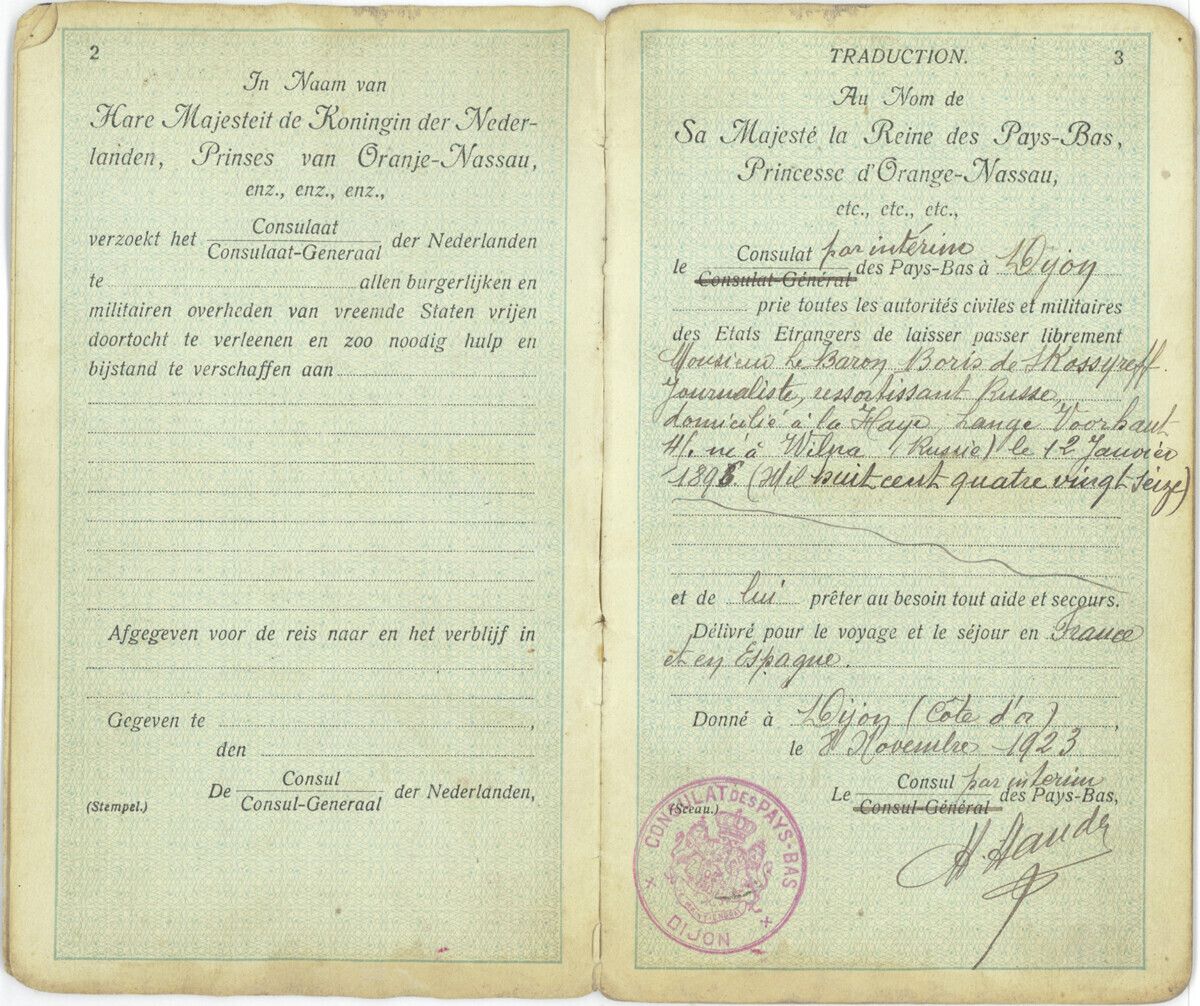 2
In Naam van
Hare Majesteit de Koningin der Neder-
landen, Prinses van Oranje-Nassau,
enz., enz., enz.,
verzoekt het Consulaat der Nederlanden
Consulaat-Generaal
te allen burgerlijken en
militairen overheden van vreemde Staten vrijen
doortocht te verleenen en zoo noodig hulp en
bijstand te verschaffen aan
Afgegeven voor de reis naar en het verblijf in
Gegeven te ,
den
De Consul der Nederlanden,
Consul-Generaal
(Stempel.)
TRADUCTION. 3
Au Nom de
Sa Majesté la Reine des Pays-Bas,
Princesse d'Orange-Nassau,
etc., etc., etc.,
le Consulat par intérim des Pays-Bas à Dijon
Consulat-Général
prie toutes les autorités civiles et militaires
des Etats Etrangers de laisser passer librement
Monsieur le Baron Boris de Skossyreff.
Journaliste, ressortissant Russe,
domicilié à la Haye, Lange Voorhaut
41. né à Wilna (Russie) le 12 Janvier
1896. (Mil huit cent quatre vingt seize)
et de lui prêter au besoin tout aide et secours.
Délivré pour le voyage et le séjour en France
et en Espagne.
Donné à Dijon (Côte d'or) ,
le 8 Novembre 1923
Le Consul par intérim des Pays-Bas,
Consul-Général
(Sceau.)
CONSULAT DES PAYS-BAS
DIJON